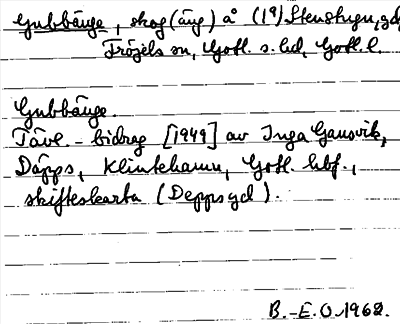 Gubbänge, skog (äng) å (1º) Stenstugu, gd,
Fröjels sn, Gotl. s. hd, Gotl. l.
Gubbänge.
Tävl.-bidrag [1949] av Inga Gansvik,
Däpps, Klintehamn, Gotl. hbf.,
skifteskarta (Deppsgd).
B.-E.O. 1968.